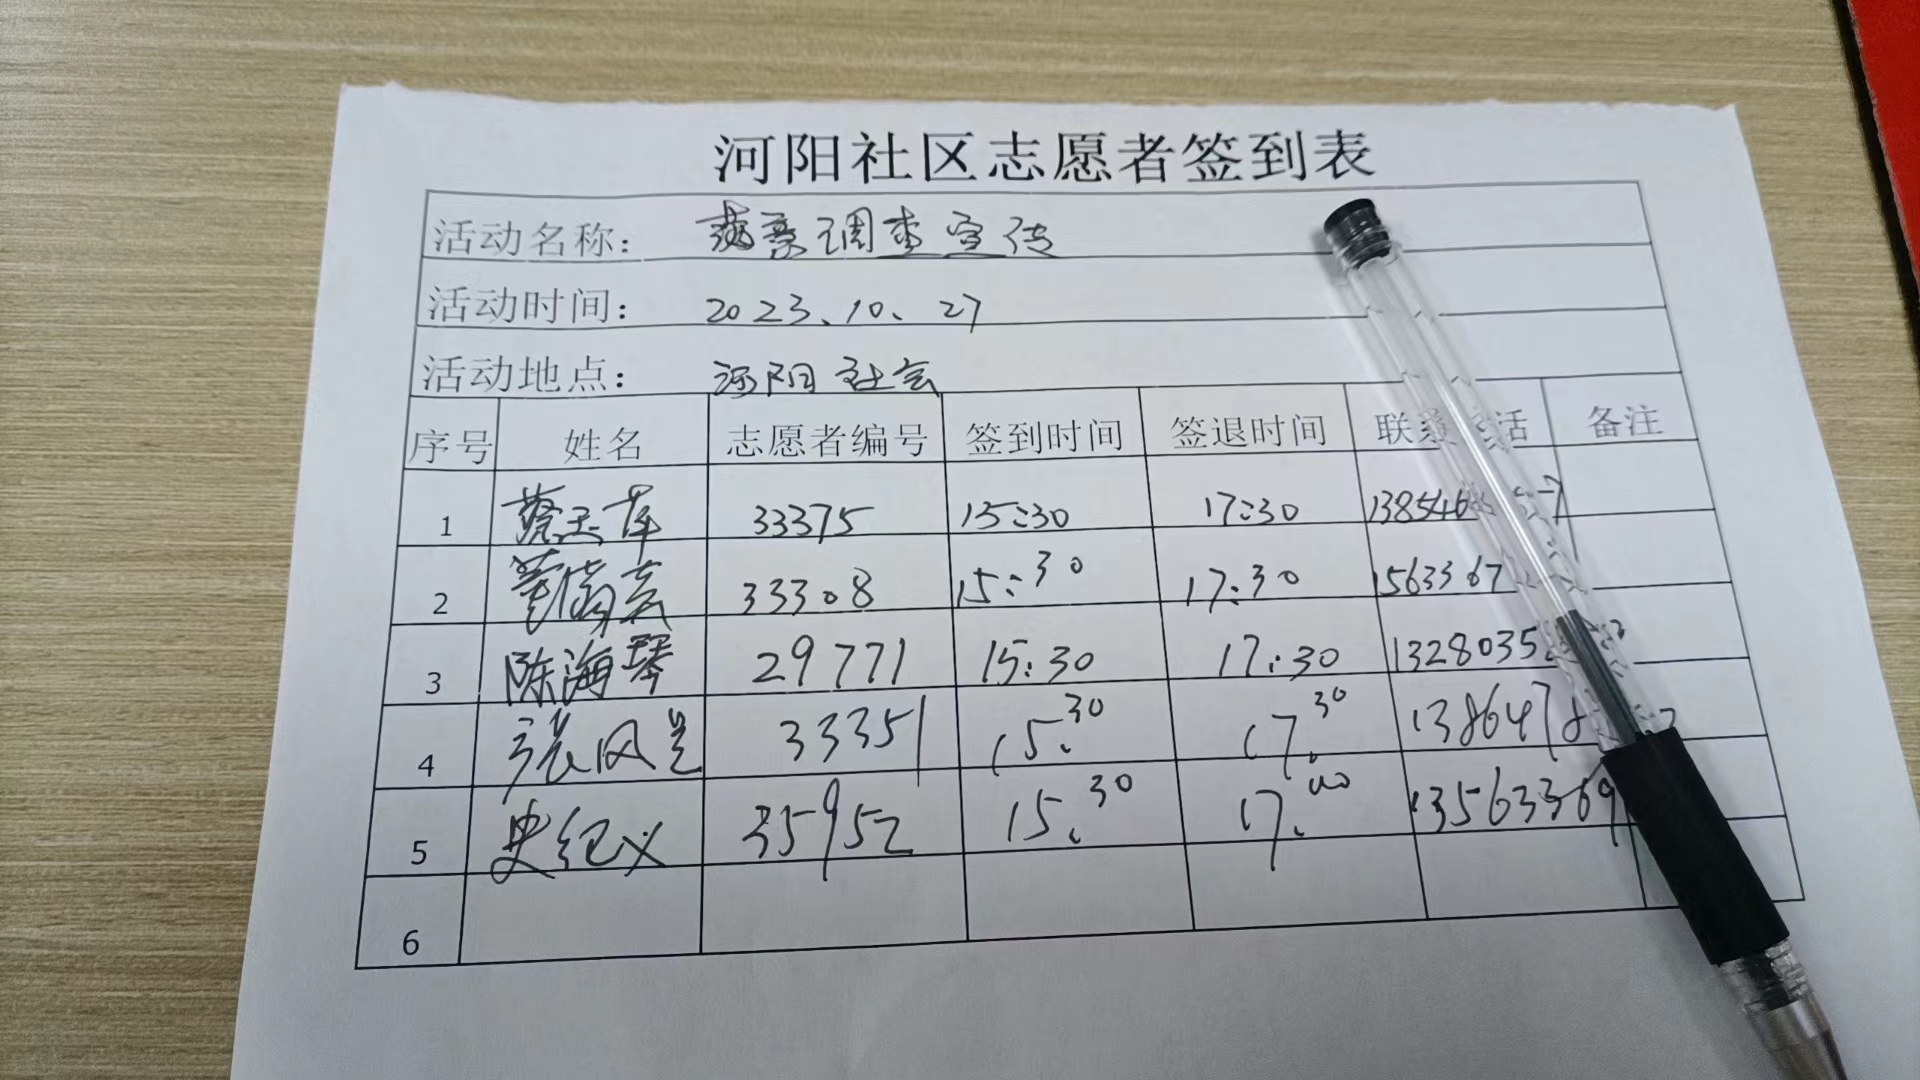 河阳社区志愿者签到表
活动名称： 调查宣传
活动时间： 2023、10、27
活动地点： 河阳社会
序号 姓名 志愿者编号 签到时间 签退时间 联系 话 备注
1 33375 15:30 17:30 138546
2 33308 15:30 17:30 1563367
3 陈海琴 29771 15:30 17:30 1328035
4 张风兰 33351 15.30 17.30 1386478
5 史纪义 35952 15.30 17.00 13563369
6